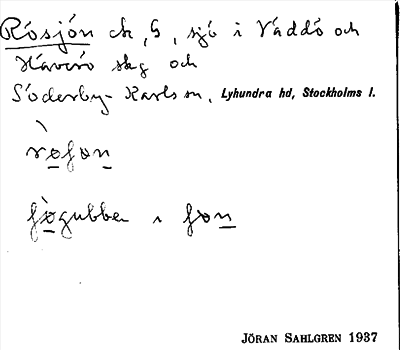 Rösjön ck, S, sjö i Väddö och
Häverö skg och
Söderby-Karls sn, Lyhundra hd, Stockholms l.
ròʃon
ʃògubben i ʃon
JÖRAN SAHLGREN 1937